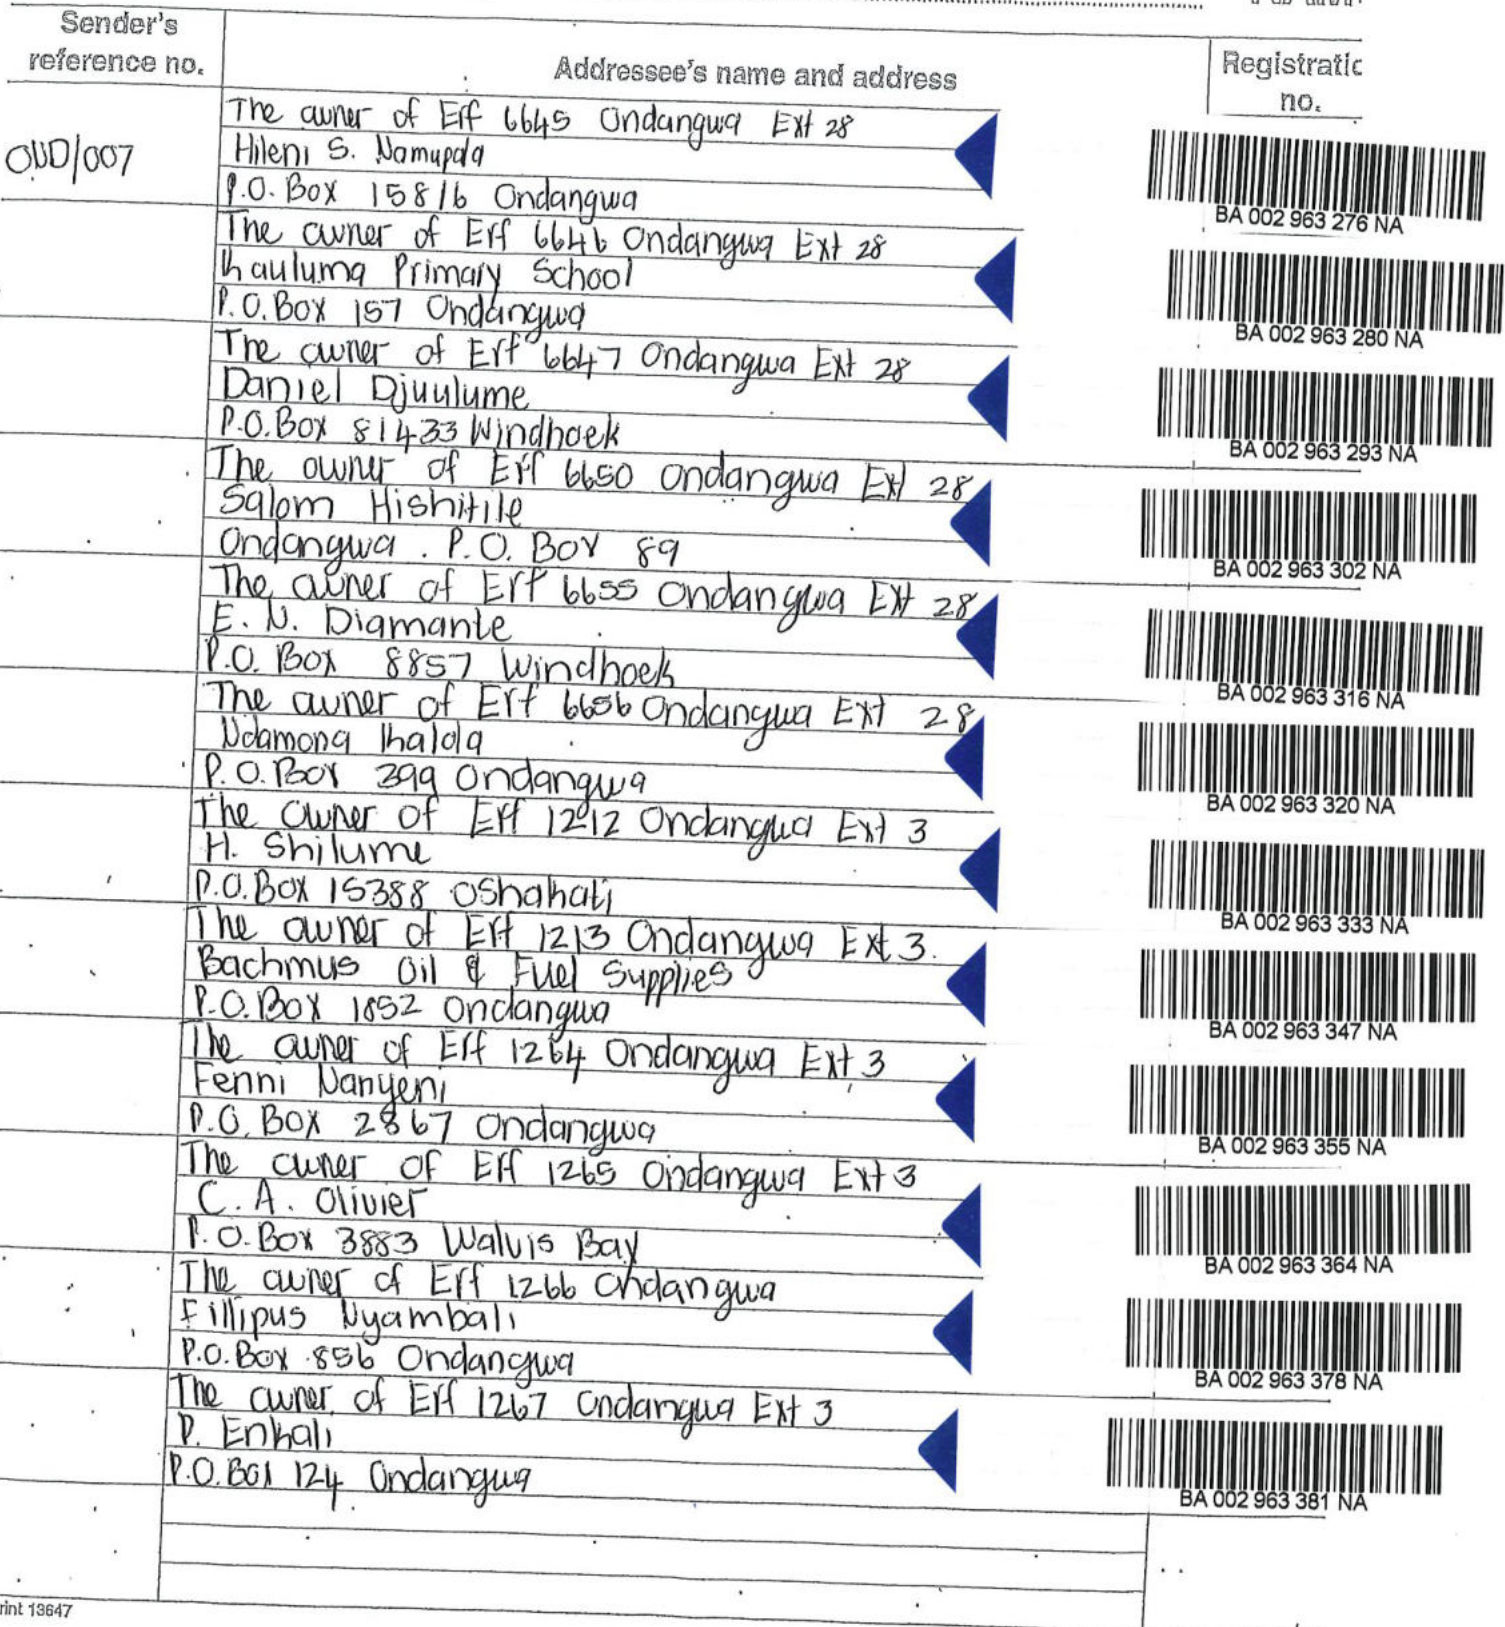 Sender's
reference no.
Addressee's name and address
Registratio
no.
OND/007
The owner of Erf 6645 Ondangwa Ext 28
Hileni S. Namupala
P.O. Box 15816 Ondangwa
BA 002 963 276 NA
The owner of Erf 6646 Ondangwa Ext 28
Kauluma Primary School
P.O. Box 157 Ondangwa
BA 002 963 280 NA
The owner of Erf 6647 Ondangwa Ext 28
Daniel Djuulume
P.O. Box 81433 Windhoek
BA 002 963 293 NA
The owner of Erf 6650 Ondangwa Ext 28
Salom Hishitile
Ondangwa . P.O. Box 89
BA 002 963 302 NA
The owner of Erf 6655 Ondangwa Ext 28
E. N. Diamante
P.O. Box 8857 Windhoek
BA 002 963 316 NA
The owner of Erf 6656 Ondangwa Ext 28
Ndamona Kalola
P.O. Box 399 Ondangwa
BA 002 963 320 NA
The owner of Erf 1212 Ondangwa Ext 3
H. Shilume
P.O. Box 15388 Oshakati
BA 002 963 333 NA
The owner of Erf 1213 Ondangwa Ext 3.
Bachmus Oil & Fuel Supplies
P.O. Box 1852 Ondangwa
BA 002 963 347 NA
The owner of Erf 1264 Ondangwa Ext 3
Fenni Nanyeni
P.O. Box 2867 Ondangwa
BA 002 963 355 NA
The owner of Erf 1265 Ondangwa Ext 3
C. A. Olivier
P.O. Box 3883 Walvis Bay
BA 002 963 364 NA
The owner of Erf 1266 Ondangwa
Fillipus Nyambali
P.O. Box 856 Ondangwa
BA 002 963 378 NA
The owner of Erf 1267 Ondangwa Ext 3
P. Enkali
P.O. Box 124 Ondangwa
BA 002 963 381 NA
rint 13647